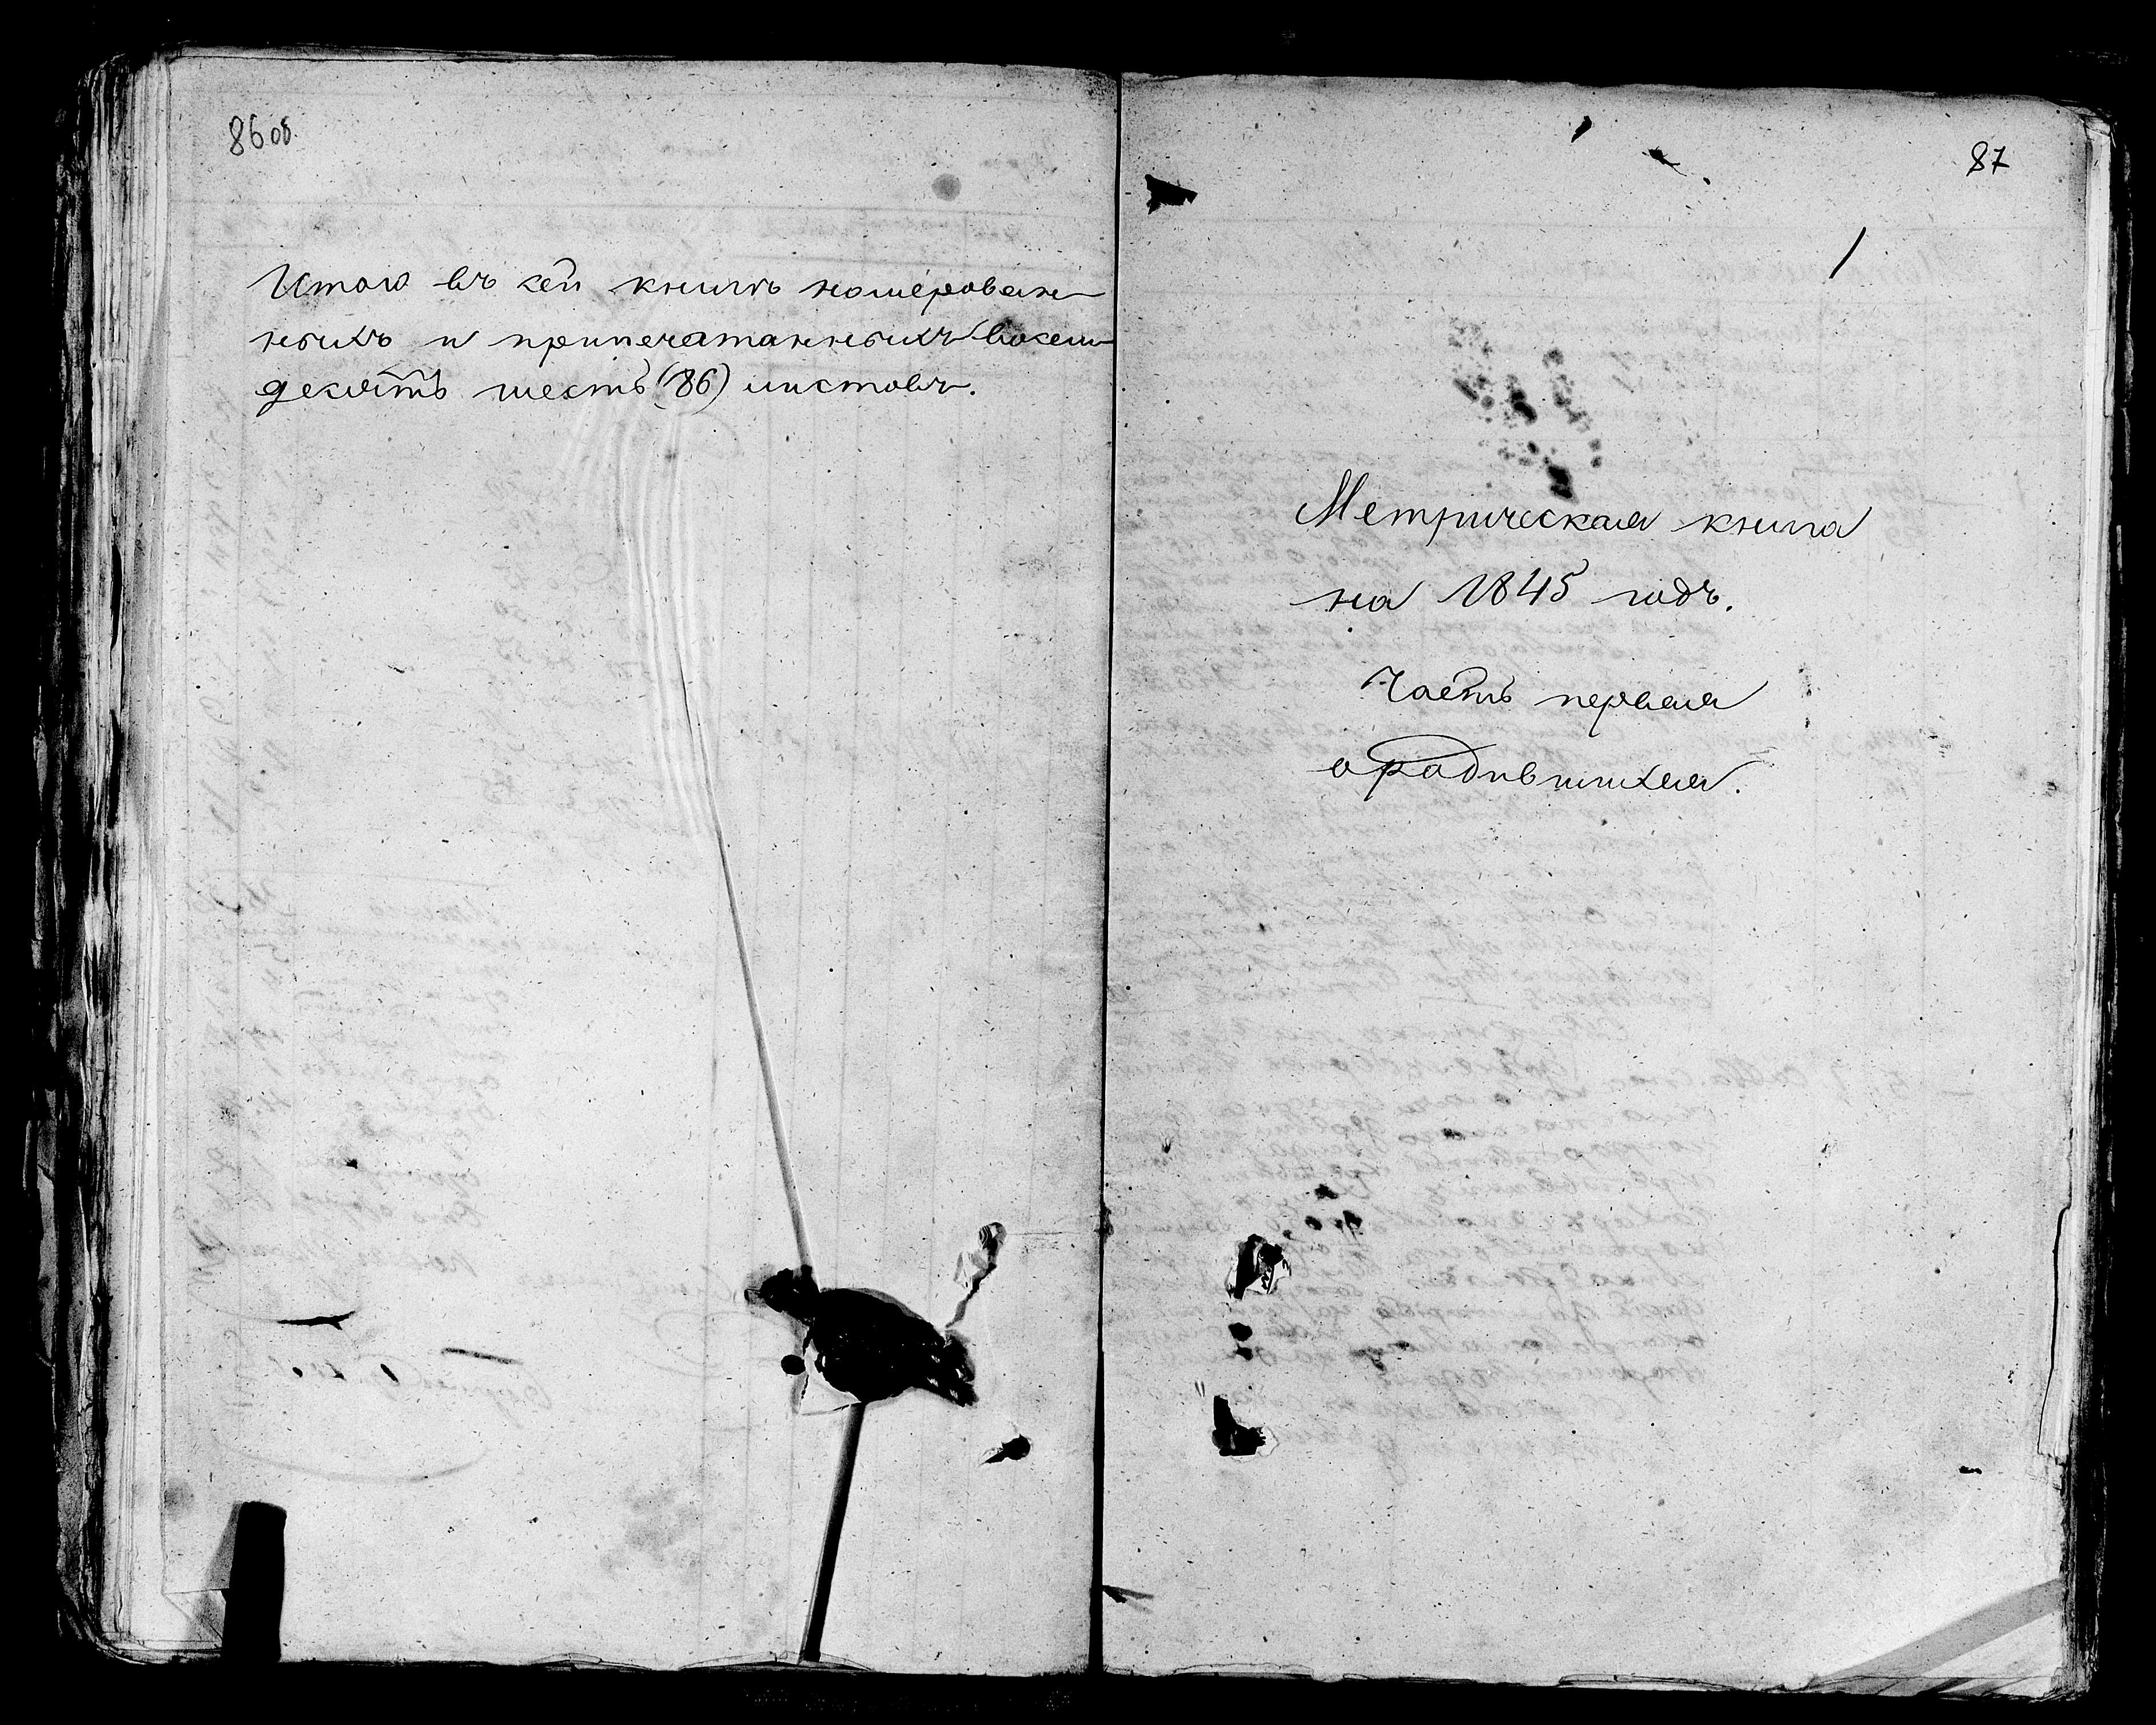 86об.
Итого въ сей книгѣ номерован-
ныхъ и припечатанныхъ восемь
десятъ шесть (86) листовъ.
87
1
Метрическая книга
на 1845 годъ.
Часть первая
о родившихся.